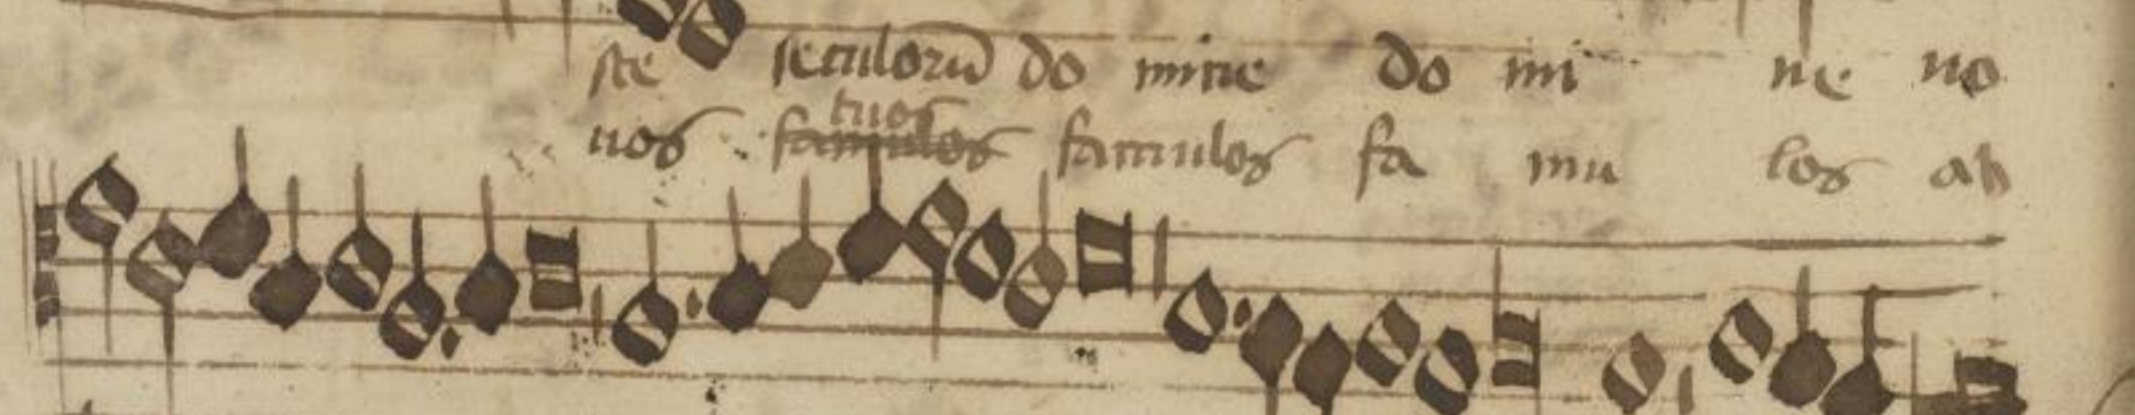 ste seculorū do mine do mi ne no
tuos
nos famulos famulos fa mu los ab